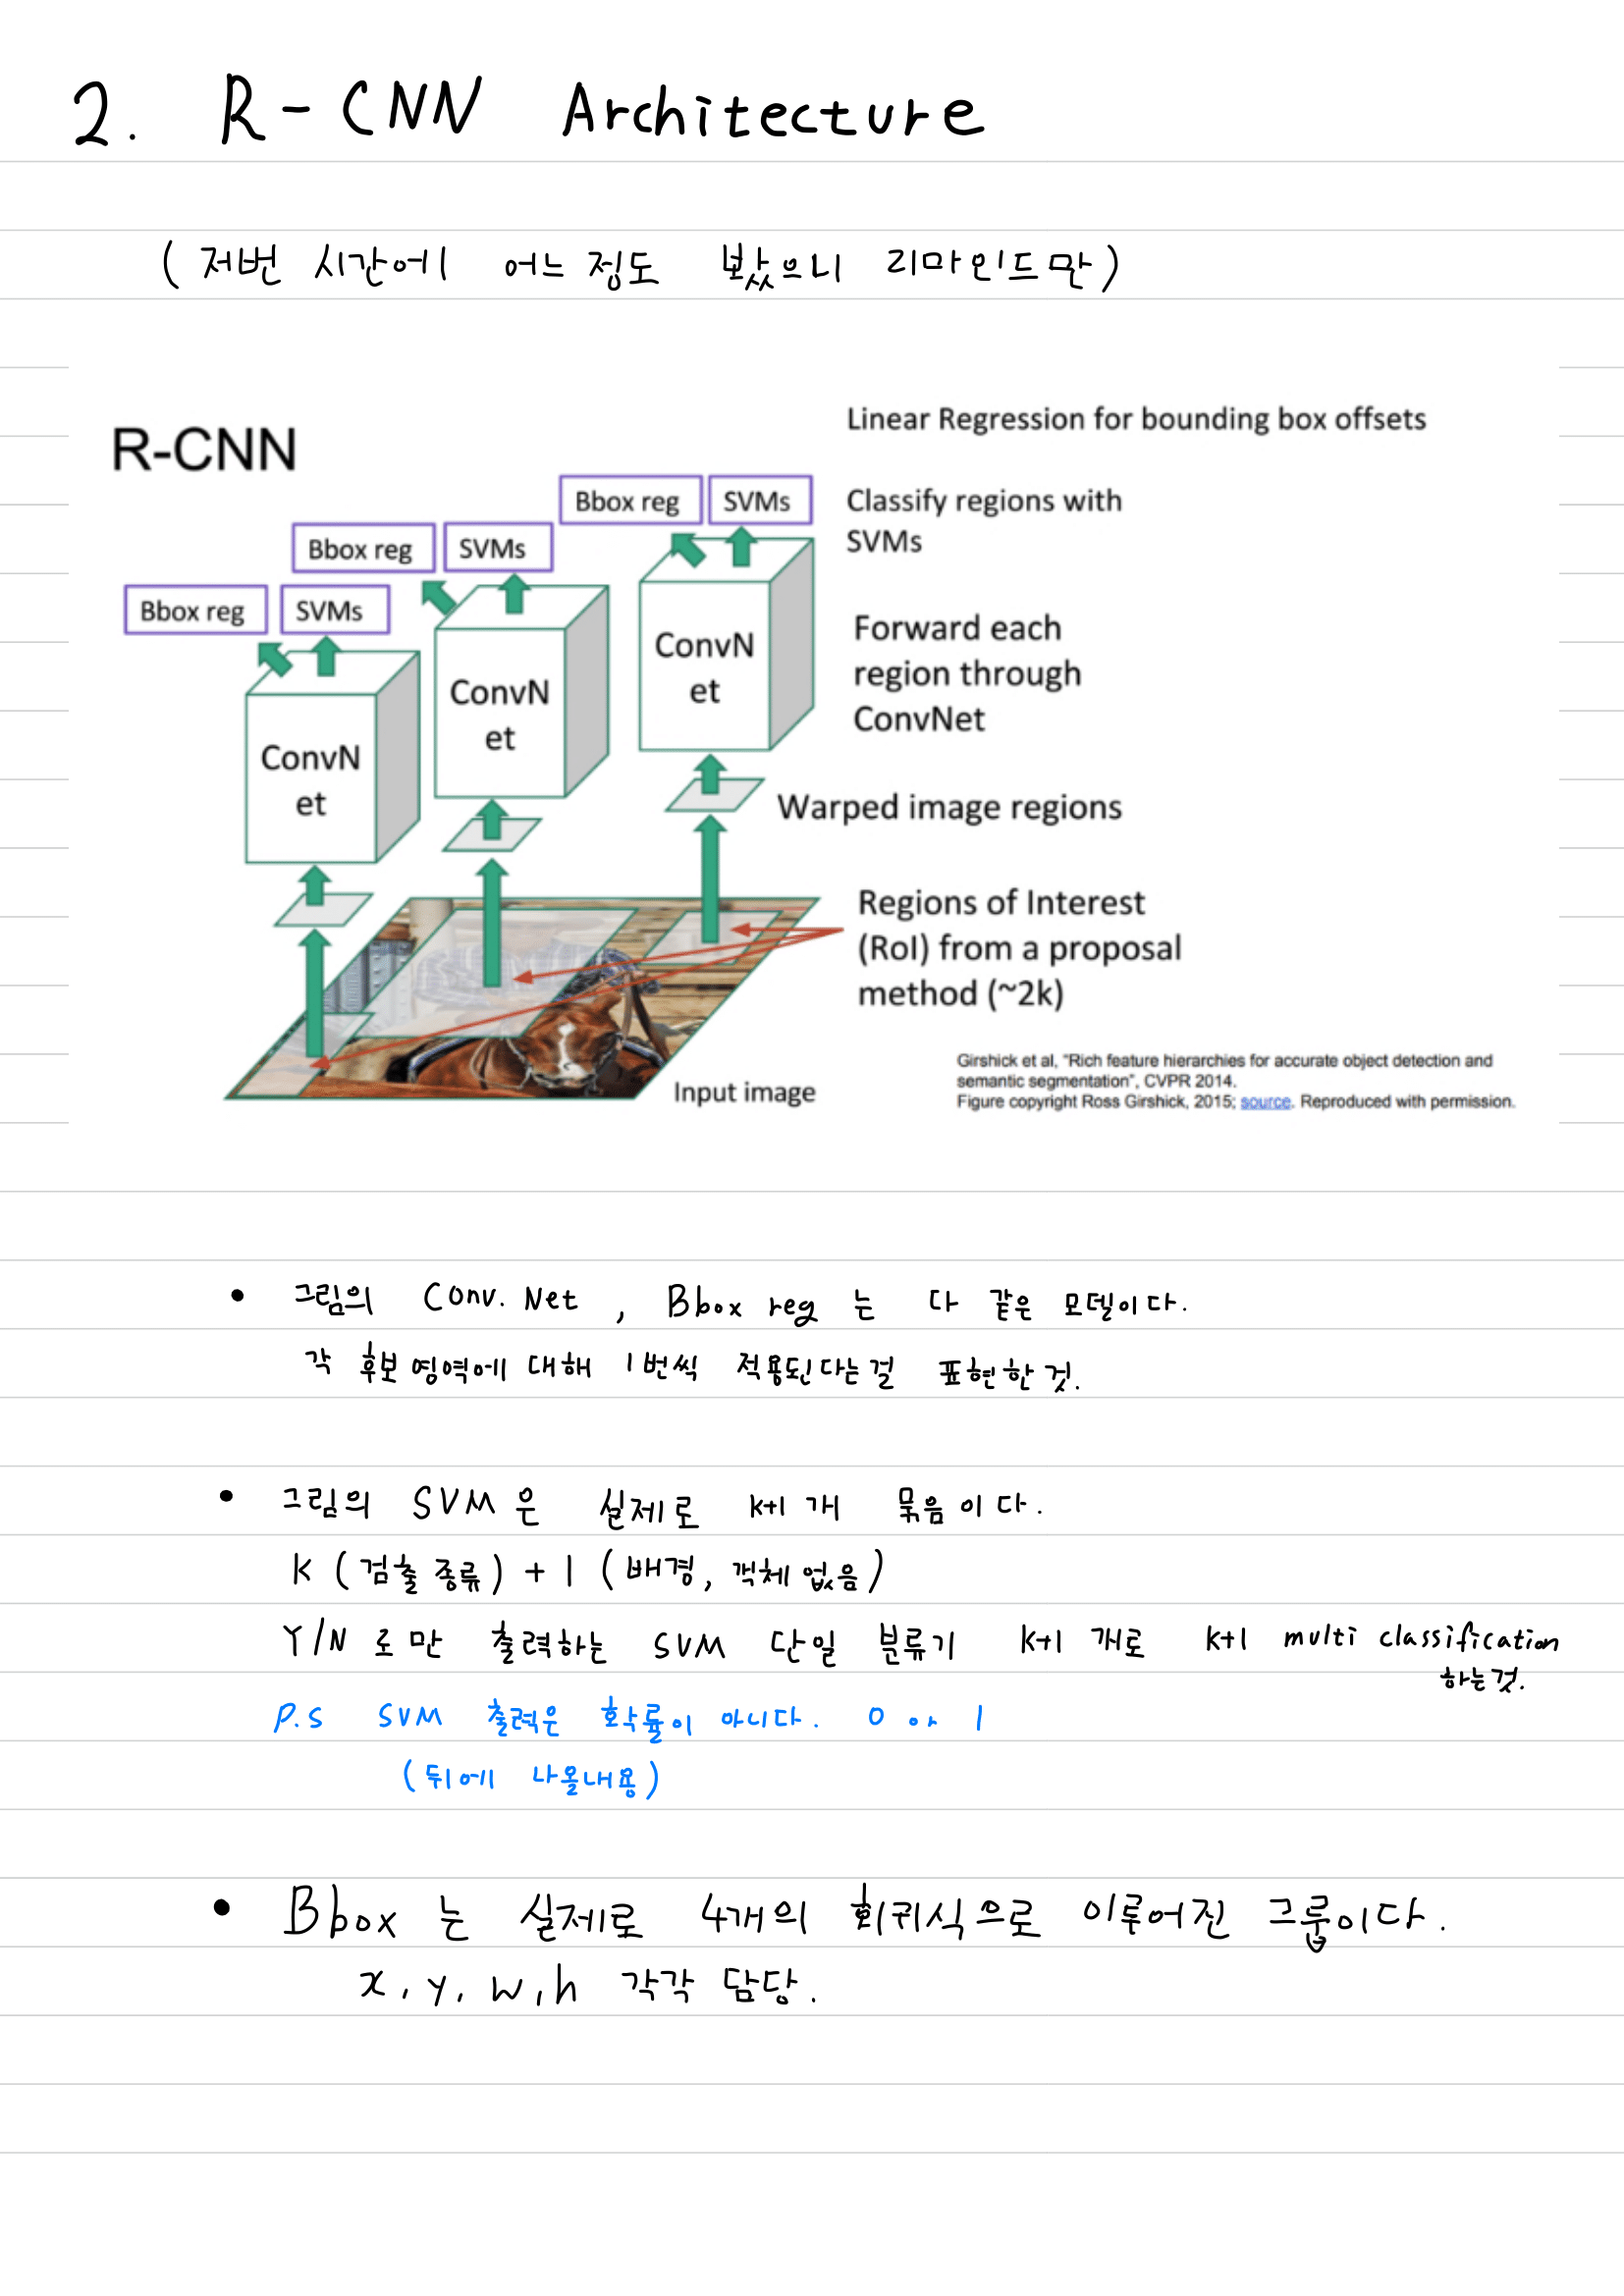 2. R-CNN Architecture
(저번 시간에 어느정도 봤으니 리마인드만)
R-CNN
Linear Regression for bounding box offsets
Bbox reg SVMs
Classify regions with
SVMs
Bbox reg SVMs
Bbox reg SVMs
Forward each
region through
ConvNet
ConvN
et
ConvN
et
ConvN
et
Warped image regions
Regions of Interest
(RoI) from a proposal
method (~2k)
Input image
Girshick et al, "Rich feature hierarchies for accurate object detection and
semantic segmentation", CVPR 2014.
Figure copyright Ross Girshick, 2015; source. Reproduced with permission.
• 그림의 Conv. Net , Bbox reg 는 다 같은 모델이다.
각 후보 영역에 대해 1번씩 적용된다는걸 표현한 것.
• 그림의 SVM은 실제로 K+1개 묶음이다.
K (검출 종류) + 1 (배경, 객체 없음)
Y/N 로만 출력하는 SVM 단일 분류기 K+1 개로 K+1 multi classification
하는것.
P.S SVM 출력은 확률이 아니다. 0 or 1
(뒤에 나올내용)
• Bbox 는 실제로 4개의 회귀식으로 이루어진 그룹이다.
x, y, w, h 각각 담당.